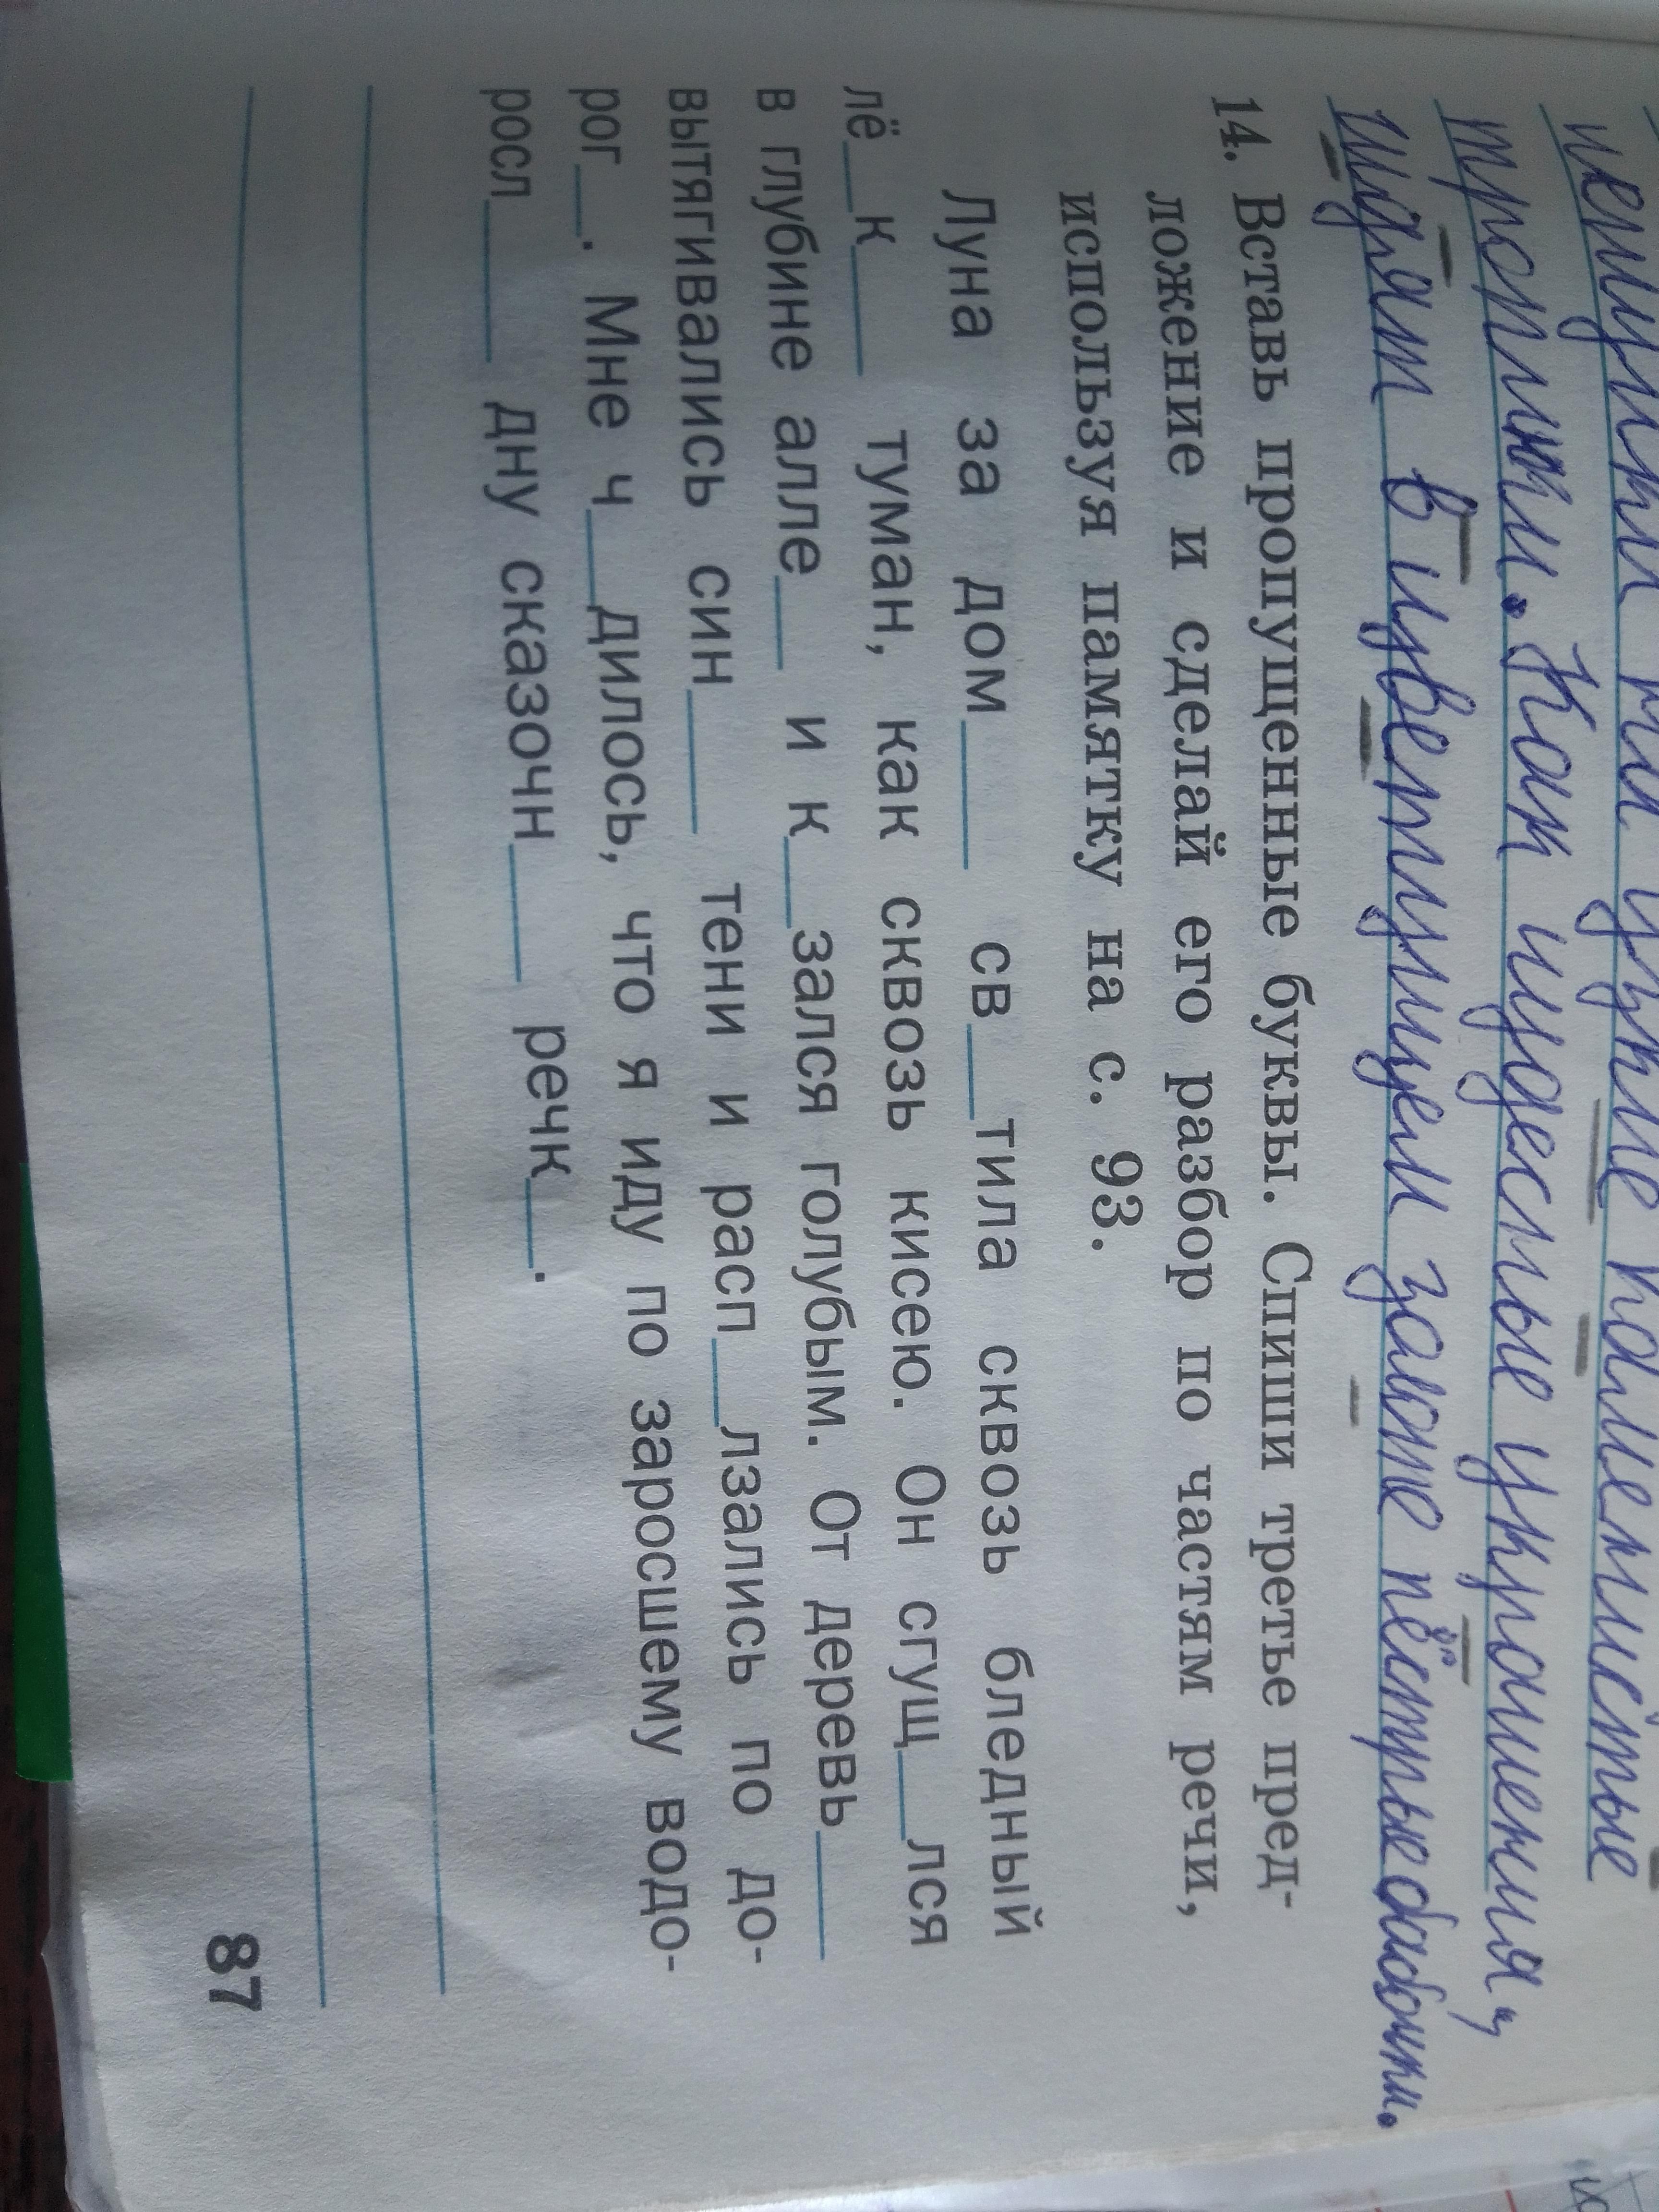 тропики. Как чудесные украшения,
сидят в цветущем зелоте пёстрые бабочки.
14. Вставь пропущенные буквы. Спиши третье пред-
ложение и сделай его разбор по частям речи,
используя памятку на с. 93.
Луна за дом___ св__тила сквозь бледный
лё__к___ туман, как сквозь кисею. Он сгущ__лся
в глубине алле__ и к__зался голубым. От деревь___
вытягивались син___ тени и расп__лзались по до-
рог__. Мне ч__дилось, что я иду по заросшему водо-
росл___ дну сказочн___ речк__.
87